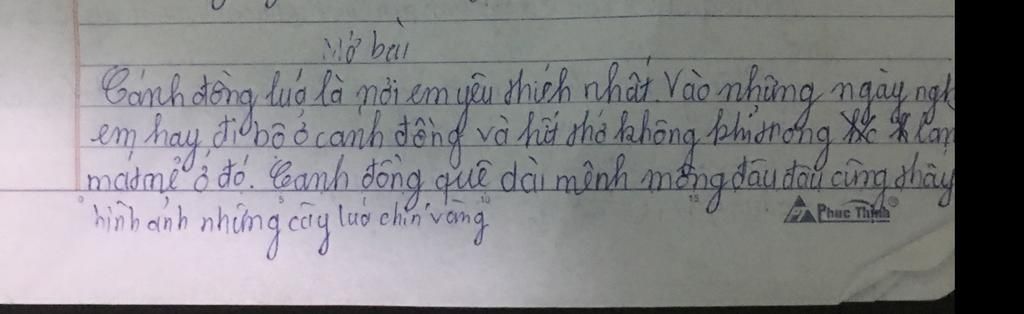 Mở bài
Cánh đồng luá là nơi em yêu thích nhất. Vào những ngày
em hay đi bộ ở cánh đồng và hít thở không khí trong
mát mẻ ở đó. Cánh đồng quê dài mênh mông đâu đâu cũng thấy
hình ảnh những cây luá chín vàng
Phuc Thinh